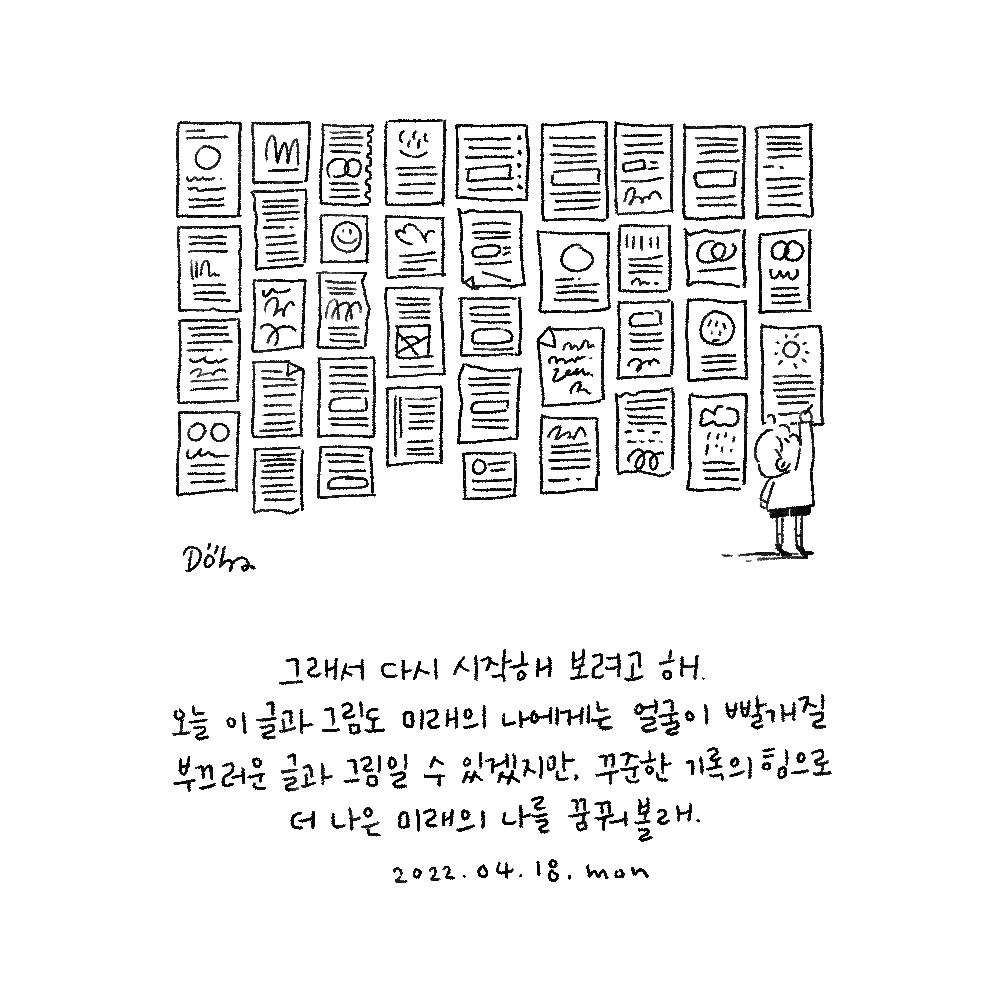 Döha
그래서 다시 시작해 보려고 해.
오늘 이 글과 그림도 미래의 나에게는 얼굴이 빨개질
부끄러운 글과 그림일 수 있겠지만, 꾸준한 기록의 힘으로
더 나은 미래의 나를 꿈꿔볼래.
2022.04.18. mon